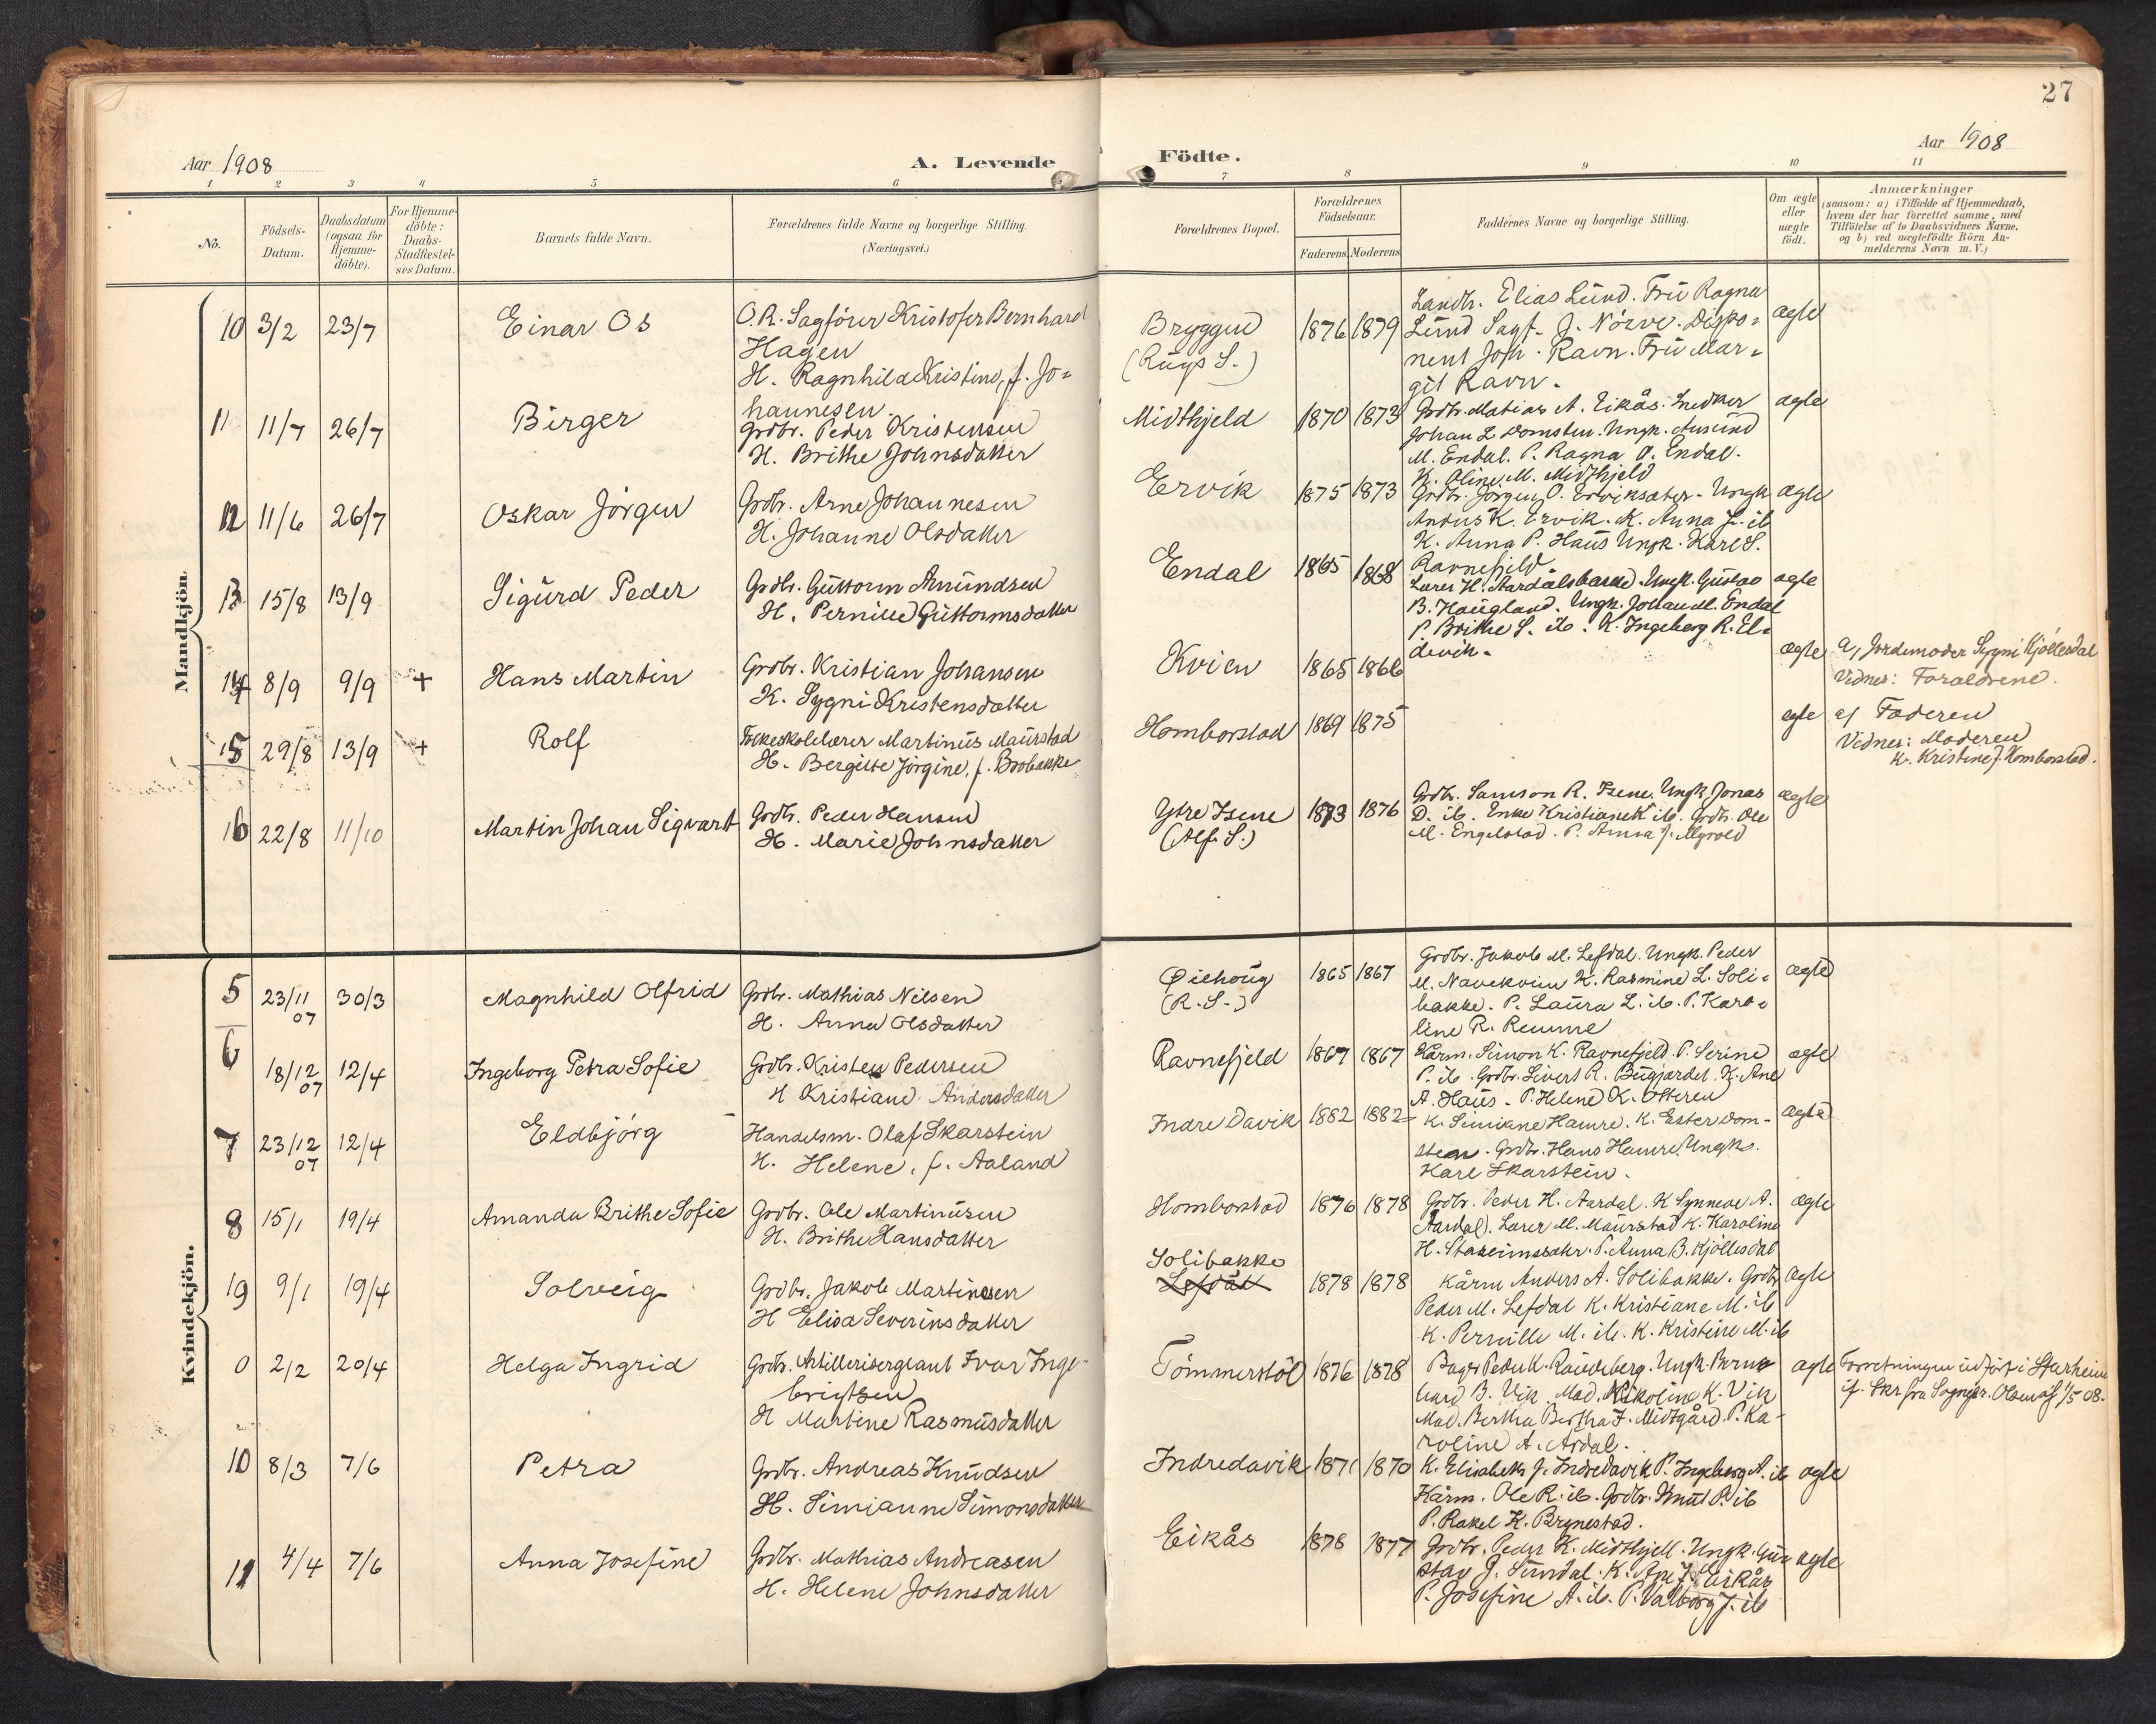 27
Aar 1908
A. Levende
Födte.
Aar 1908
1 2 3 4 5 6 7 8 9 10 11
No.
Födsels-
Datum.
Daabsdatum
(ogsaa for
Hjemme-
döbte).
For Hjemme-
döbte:
Daabs-
Stadfæstel-
ses Datum.
Barnets fulde Navn.
Forældrenes fulde Navne og borgerlige Stilling.
(Næringsvei.)
Forældrenes Bopæl.
Forældrenes
Födselsaar.
Faderens. Moderens
Faddernes Navne og borgerlige Stilling.
Om ægte
eller
uægte
födt.
Anmærkninger
(saasom: a) i Tilfælde af Hjemmedaab,
hvem der har forrettet samme, med
Tilföielse af to Daabsvidners Navne,
og b) ved uægtefödte Börn An-
melderens Navn m.V.)
Mandkjön.
10 3/2 23/7 Einar Os
O.R. Sagförer Kristofer Bernhard
Hagen
H. Ragnhild Kristine, f. Jo=
hannesen.
Bryggen
(Rugs S.)
1876 1879
Landh. Elias Lund. Frü Ragna
Lund Sagf. J. Nörve. Dispo=
nent Joh. Ravn. Frü Mar=
git Ravn.
ægte
11 11/7 26/7 Birger
Grdbr. Peder Kristensen
H. Brithe Johnsdatter
Midthjeld 1870 1873
Grdbr. Matias A. Eikås. Snedker
Johan L Domsten. Ungk. Amund
M. Endal. P. Ragna A. Endal.
K. Oline M. Midthjeld
ægte
12 11/6 26/7 Oskar Jörgen
Grdbr. Arne Johannesen
H. Johanne Olsdatter
Ervik 1875 1873
Grdbr. Jörgen O. Erviksæter. Ungk
Antus K. Ervik. K. Anna J. ib
K. Anna P. Haus Ungk. Karl S.
Ravnefjeld.
ægte
13 15/8 13/9 Sigurd Peder
Grdbr. Guttorm Amundsen
H. Pernille Guttormsdatter
Endal 1865 1868
Lærer H. Aardalsbakke. Ungk. Gustav
B. Haugland. Ungk. Johan M. Endal
P Brithe S. ib. K. Ingeborg R. El=
devik.
ægte
14 8/9 9/9 + Hans Martin
Grdbr. Kristian Johansen
H. Sygni Kristensdatter
Kvien 1865 1866 ægte
a, Jordemoder Sygni Kjöllesdal
Vidner: Forældrene.
15 29/8 13/9 + Rolf
Folkeskolelærer Martinus Maurstad
H. Bergitte Jörgine, f. Brobakke
Homborstad 1869 1875 ægte
a/ Faderen
Vidner: Moderen
K. Kristine J. Homborstad.
16 22/8 11/10 Martin Johan Sigvart
Grdbr. Peder Hansen
H. Marie Johnsdatter
Ytre Isene
(Alf. S.)
1873 1876
Grdbr. Samson R. Isene. Ungk Jonas
D. ib. Enke Kristiane K ib. Grdbr. Ole
M. Engelstad. P. Anna J. Myrold
ægte
Kvindekjön.
5 23/11 07 30/3 Magnhild Olfrid
Grdbr. Mathias Nilsen
H. Anna Olsdatter
Øiehoug
(R. S.)
1865 1867
Grdbr. Jakob M. Lefdal. Ungk. Peder
M. Navekvien K. Rasmine L. Soli=
bakke. P. Laura L. ib. P. Karo=
line R. Remme
ægte
6 18/12 07 12/4 Ingeborg Petra Sofie
Grdbr. Kristen Pedersen
H Kristiane Andersdatter
Ravnefjeld 1867 1867
Kårm. Simon K. Ravnefjeld. P. Serine
P. ib. Grdbr. Sivert R. Bugjærdet. K. Ane
A. Haus. P. Helene K. Osteren
ægte
7 23/12 07 12/4 Eldbjörg
Handelsm. Olaf Skarstein
H. Helene, f. Aaland
Indre Davik 1882 1882
K. Simiane Hamre. K. Ester Dom-
stein. Grdbr. Hans Hamre. Ungk.
Karl Skarstein.
ægte
8 15/1 19/4 Amanda Brithe Sofie
Grdbr. Ole Martinusen
H. Brithe Hansdatter
Homborstad 1876 1878
Grdbr. Peder H. Aardal. K Synneve A.
Aardal). Lærer M. Maurstad K. Karoline
H. Stareimssæter. P. Anna B. Kjöllesdal
ægte
19 9/1 19/4 Solveig
Grdbr. Jakob Martinusen
H Elisa Severinsdatter
Solibakke
Lefdal
1878 1878
Kårm Anders A. Solibakke. Grdbr
Peder M. Lefdal K. Kristiane M. ib
K. Pernille M. ib. K. Kristine M. ib
ægte
0 2/2 20/4 Helga Ingrid
Grdbr. Artillerisergeant Ivar Inge-
brigtsen
H Martine Rasmusdatter
Tömmerstöl 1876 1878
Bager Peder K. Raudeberg. Ungk. Bern
hard B. Vik. Mad. Nikoline K. Vik
Mad. Bertha Bertha J. Midtgård. P. Ka-
roline A. Ardal.
ægte
Forretningen udfört i Starheim
if. Skr fra Sognepr. 1/5 08.
10 8/3 7/6 Petra
Grdbr. Andreas Knudsen
H. Simianne Simonsdatter
Indredavik 1871 1870
K. Elisabeth J. Indredavik P. Ingeborg A. ib
Kårm. Ole R. ib. Grdbr. Knut P. ib
P. Rakel K. Brynestad.
ægte
11 4/4 7/6 Anna Josefine
Grdbr. Mathias Andreasen
H. Helene Johnsdatter
Eikås 1878 1877
Grdbr. Peder K. Midthjell. Ungk. Gun
stav J. Sundal. K. Ane J. Eikås
P. Josefine A. ib. P. Valborg J. ib
ægte